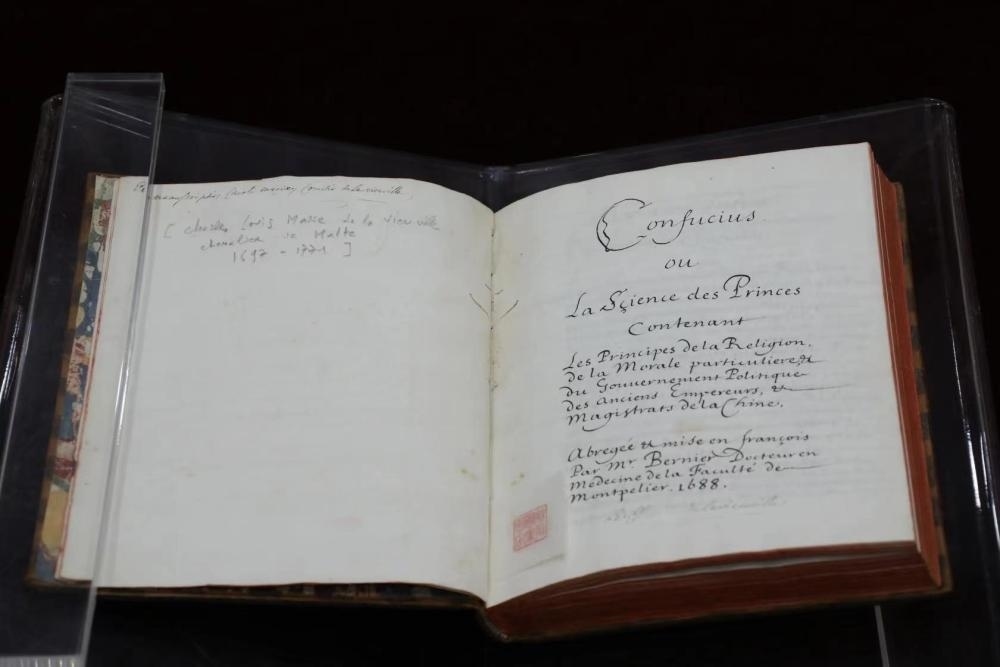 Comitis de la vieuville.
[ Charles Louis Marie de la vieuville
chevalier de Malte
1697 - 1771 ]
Confucius
ou
La Sçience des Princes
Contenant
Les Principes de la Religion,
de la Morale particuliere &
du Gouvernement Politique
des anciens Empereurs, &
Magistrats de la Chine.
Abregée & mise en françois
Par Mr. Bernier Docteur en
Medecine de la Faculté de
Montpelier. 1688.